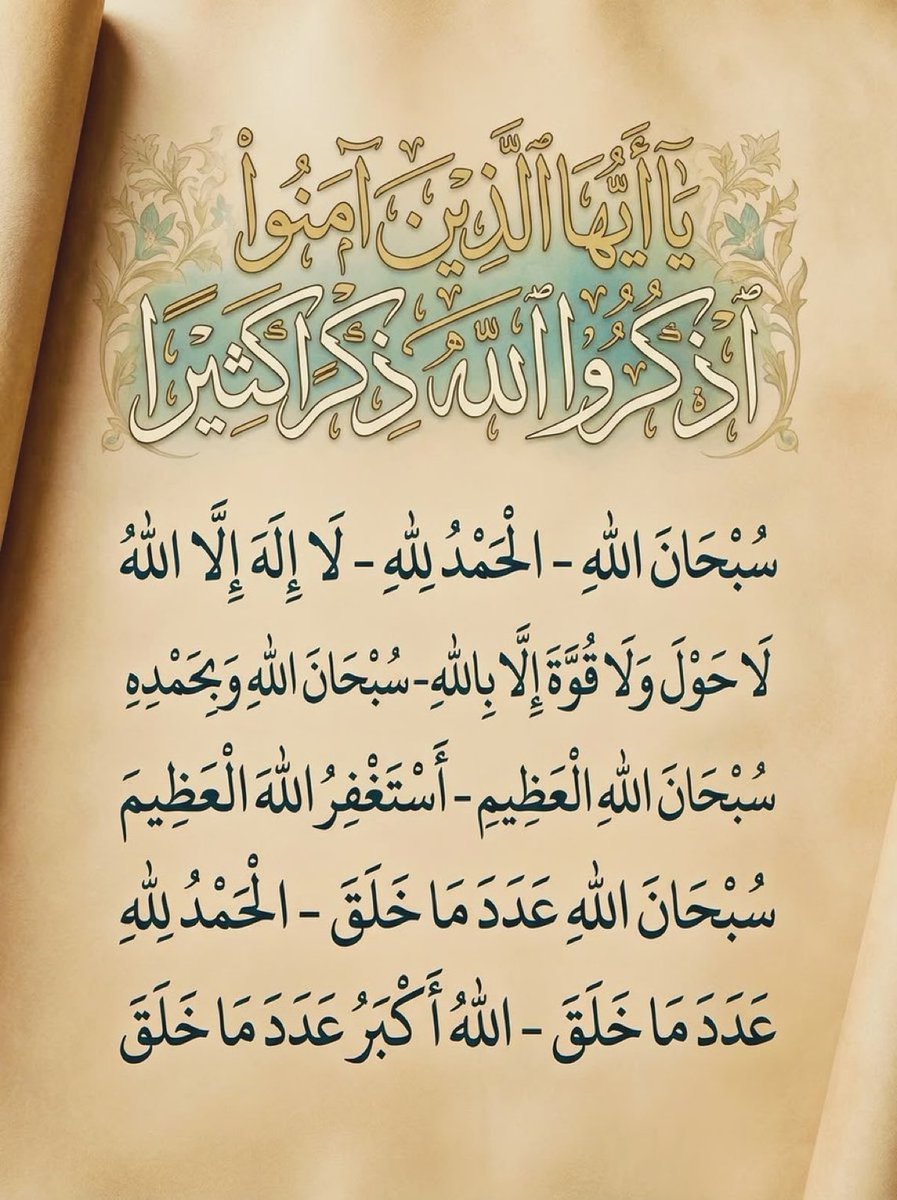 يَا أَيُّهَا ٱلَّذِينَ آمَنُواْ
ٱذْكُرُوا ٱللَّهَ ذِكْرًا كَثِيرًا
سُبْحَانَ اللهِ - الْحَمْدُ لِلهِ - لَا إِلَهَ إِلَّا اللهُ
لَا حَوْلَ وَلَا قُوَّةَ إِلَّا بِاللهِ - سُبْحَانَ اللهِ وَبِحَمْدِهِ
سُبْحَانَ اللهِ الْعَظِيمِ - أَسْتَغْفِرُ اللهَ الْعَظِيمَ
سُبْحَانَ اللهِ عَدَدَ مَا خَلَقَ - الْحَمْدُ لِلهِ
عَدَدَ مَا خَلَقَ - اللهُ أَكْبَرُ عَدَدَ مَا خَلَقَ